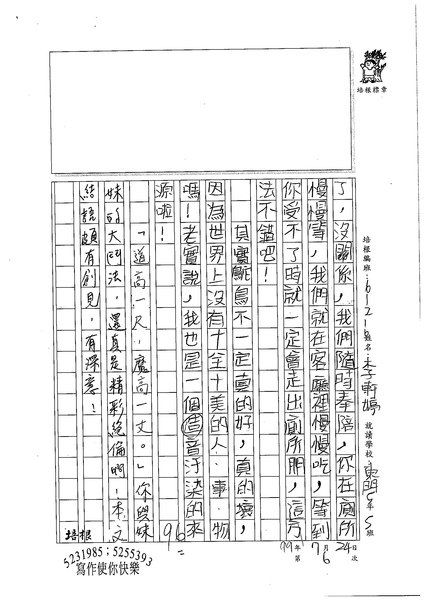 培根標章
培根編班：6121 姓名：李軒婷 就讀學校 東門5年5班
99年7月24日
第6次
了，沒關係，我們隨時奉陪，你在廁所
慢慢等，我們就在客廳裡慢慢吃，等到
你受不了時就一定會走出廁所門，這方
法不錯吧！
其實鴕鳥不一定真的好，真的壞，
因為世界上沒有十全十美的人、事、物
嗎！老實說，我也是一個噪音汙染的來
源啦！
96
「道高一尺，魔高一丈。」你與妹
妹的大鬥法，還真是精彩絕倫啊！本文
結語頗有創見，有深意！
培根
5231985；5255393
寫作使你快樂